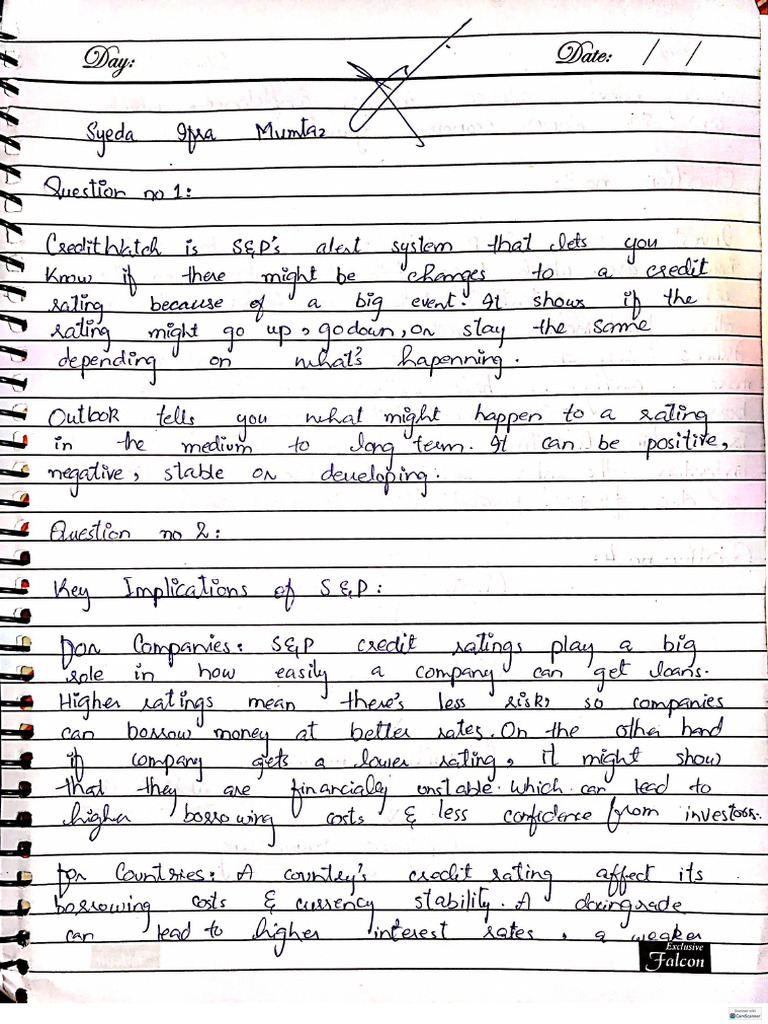 Day: Date: / /
Syeda Ifra Mumtaz
Question no 1:
CreditWatch is S&P's alert system that lets you
know if there might be changes to a credit
rating because of a big event. It shows if the
rating might go up, go down, or stay the same
depending on what's hapenning.
Outlook tells you what might happen to a rating
in the medium to long term. It can be positive,
negative, stable or developing.
Question no 2:
Key Implications of S&P:
For Companies: S&P credit ratings play a big
role in how easily a company can get loans.
Higher ratings mean there's less risk, so companies
can borrow money at better rates. On the other hand
if company gets a lower rating, it might show
that they are financialy unstable. Which can lead to
higher borrowing costs & less confidence from investors.
For Countries: A country's credit rating affect its
borrowing costs & currency stability. A downgrade
can lead to higher interest rates, a weaker
Exclusive
Falcon
CamScanner